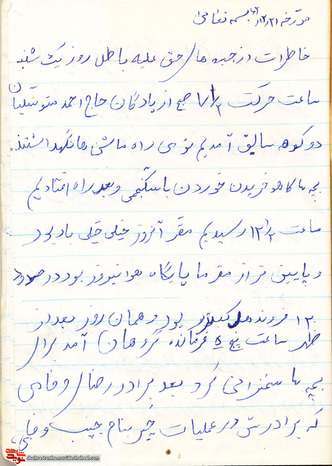 مورخه ۶۲/۱۲/۲۱ بسمه تعالی
خاطرات از جبهه های حق علیه باطل روز یک شنبه
ساعت حرکت ۷/۵ صبح از پادگان حاج احمد متوسلیان
دو کوهه سابق آمدیم توی راه ماشین ها نگهداشتند
بچه ها کاهو خریدن خوردن با شلغمی و بعد راه افتادیم
ساعت ۱۲/۵ رسیدیم مقر آن روز خیلی خیلی باد بود
و پایین تر از مقر ما پایگاه هوانیروز بود در حدود
۱۲ فروند هلیکوپتر بود و همان روز بعد از
ظهر ساعت ۵ فرمانده گروهان آمد برای
بچه ها سخنرانی کرد بعد برادر رضا وفایی
که برادرش در عملیات خیبر بنام حبیب وفایی